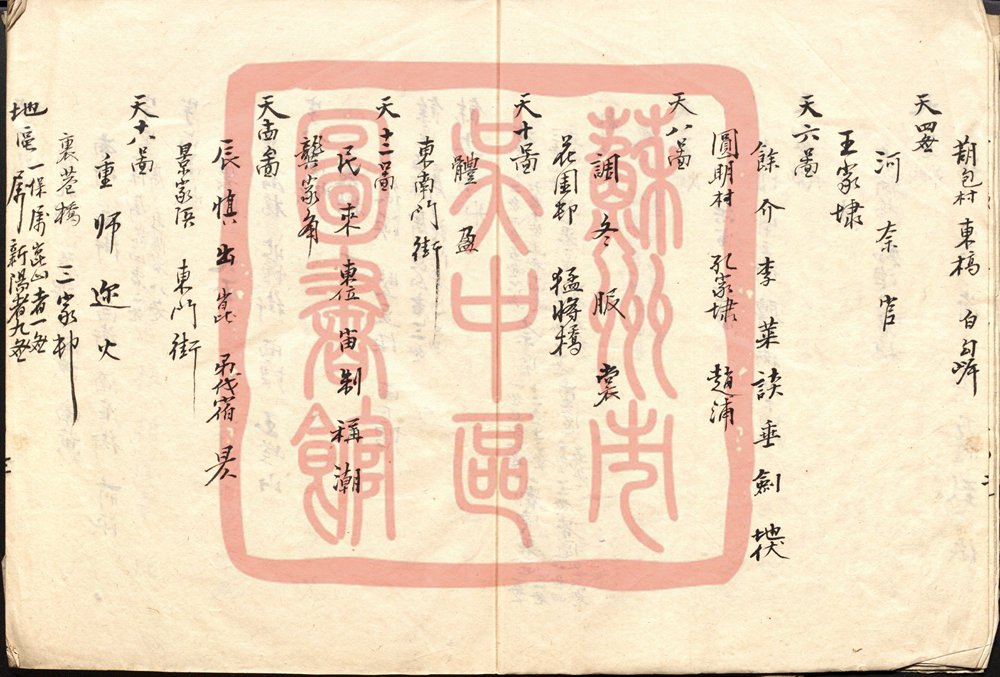 胡包村 東橋 吉白 甸岸
天四啚
河 奈 官
王家埭
天六啚
餘 介 李 菜 談 垂 劍 地 伏
天八啚
圓明村 孔家埭 趙浦
調 冬 服 裳
天十啚
花園邨 猛將橋
體 盈
東南門街
天十二啚
民 來 東位 宙 制 稱 潮
龔家角
天十四啚
辰 慎 出 崑 宿 昃
景家浜 東門街
天十八啚
重 師 迩 火
裏巷橋 三家邨
地區一保屬崑山者一啚
屬新陽者九啚
蘇州市
吳中區
圖書館